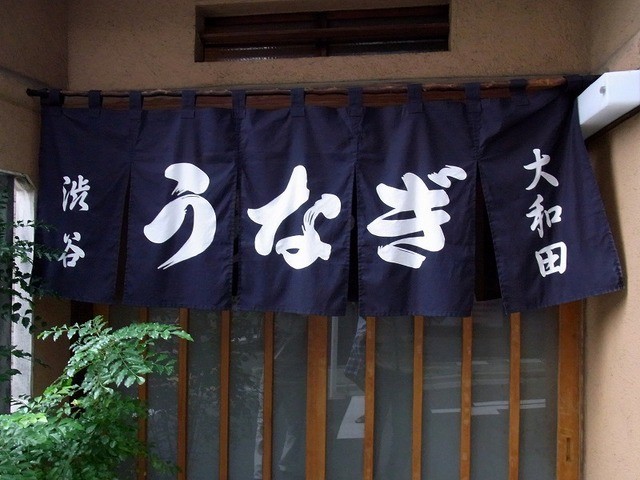 渋谷
うなぎ
大和田